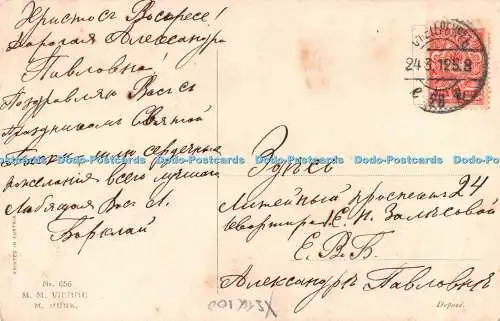 Христосъ Воскресе!
Дорогая Александра
Павловна!
Поздравляю Васъ съ
праздникомъ Святой
Пасхи шлю сердечныя
пожелания всего лучшаго
Любящая Васъ Л.
Барклай
Здѣсь
Литейный проспектъ 24
квартира Е. Н. Залѣсовой
Е. В. Б.
Александрѣ Павловнѣ
С.ПЕТЕРБУРГЪ
24 3. 12 5. 8
26
PRINTED IN AUSTRIA
Nr. 656
M. M. VIENNE
M. MUNK.
Déposé.
Dodo-Postcards Dodo-Postcards Dodo-Postcards Dodo-Postcards Dodo-Postcards Dodo-Postcards